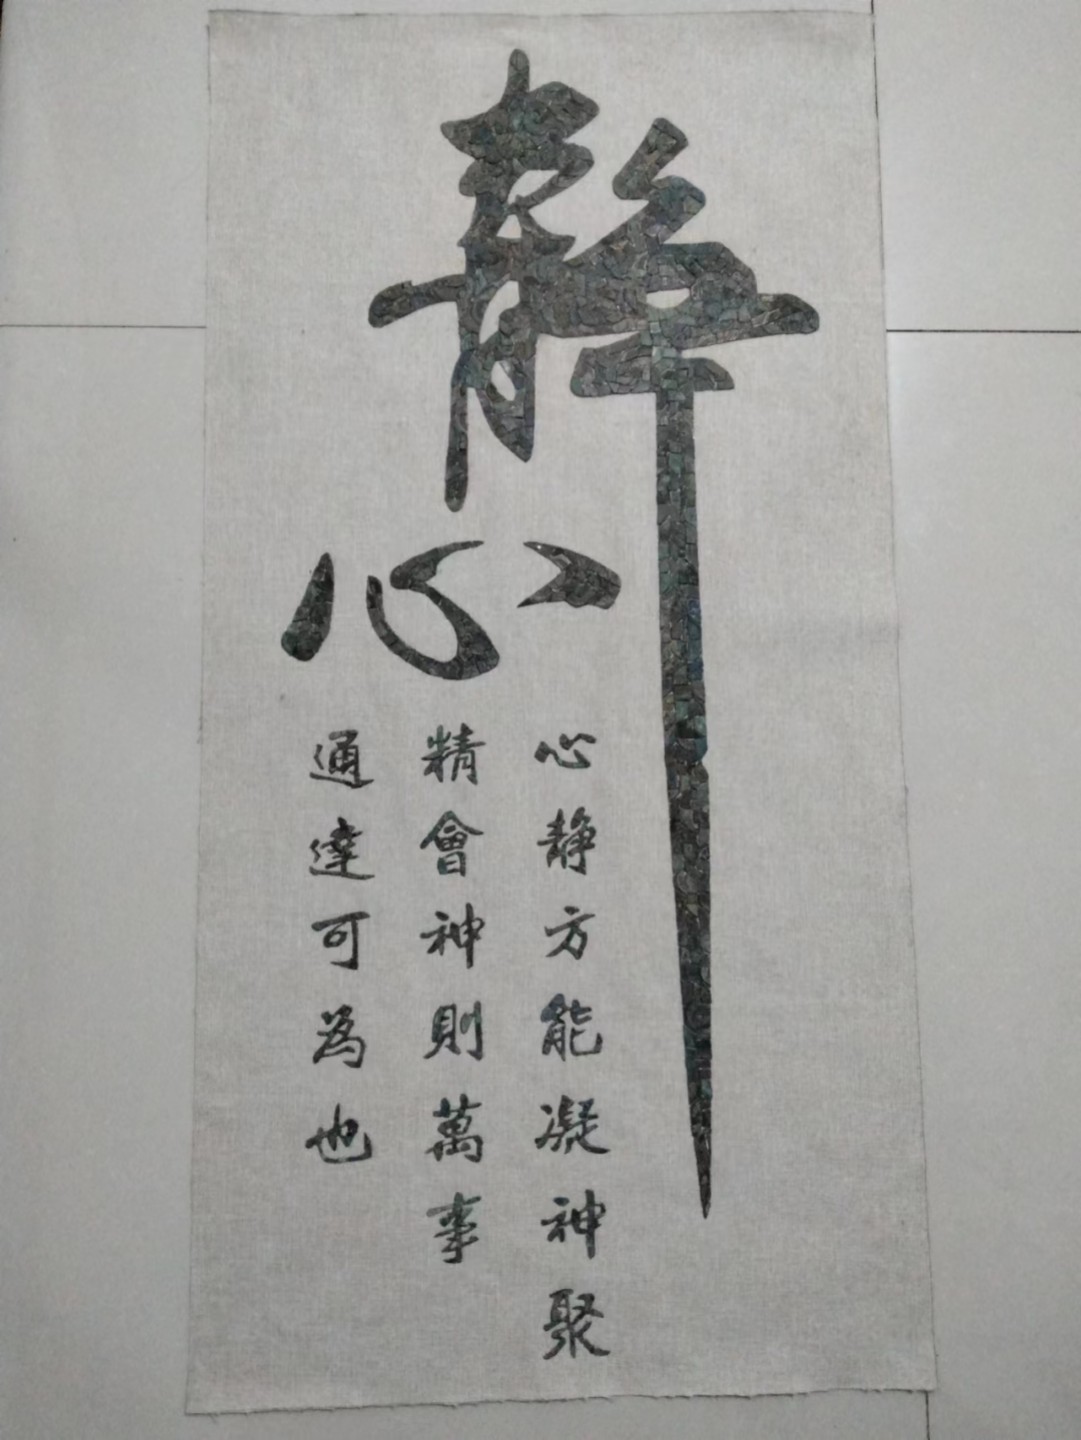 静心
心静方能凝神聚
精會神則萬事
通達可為也